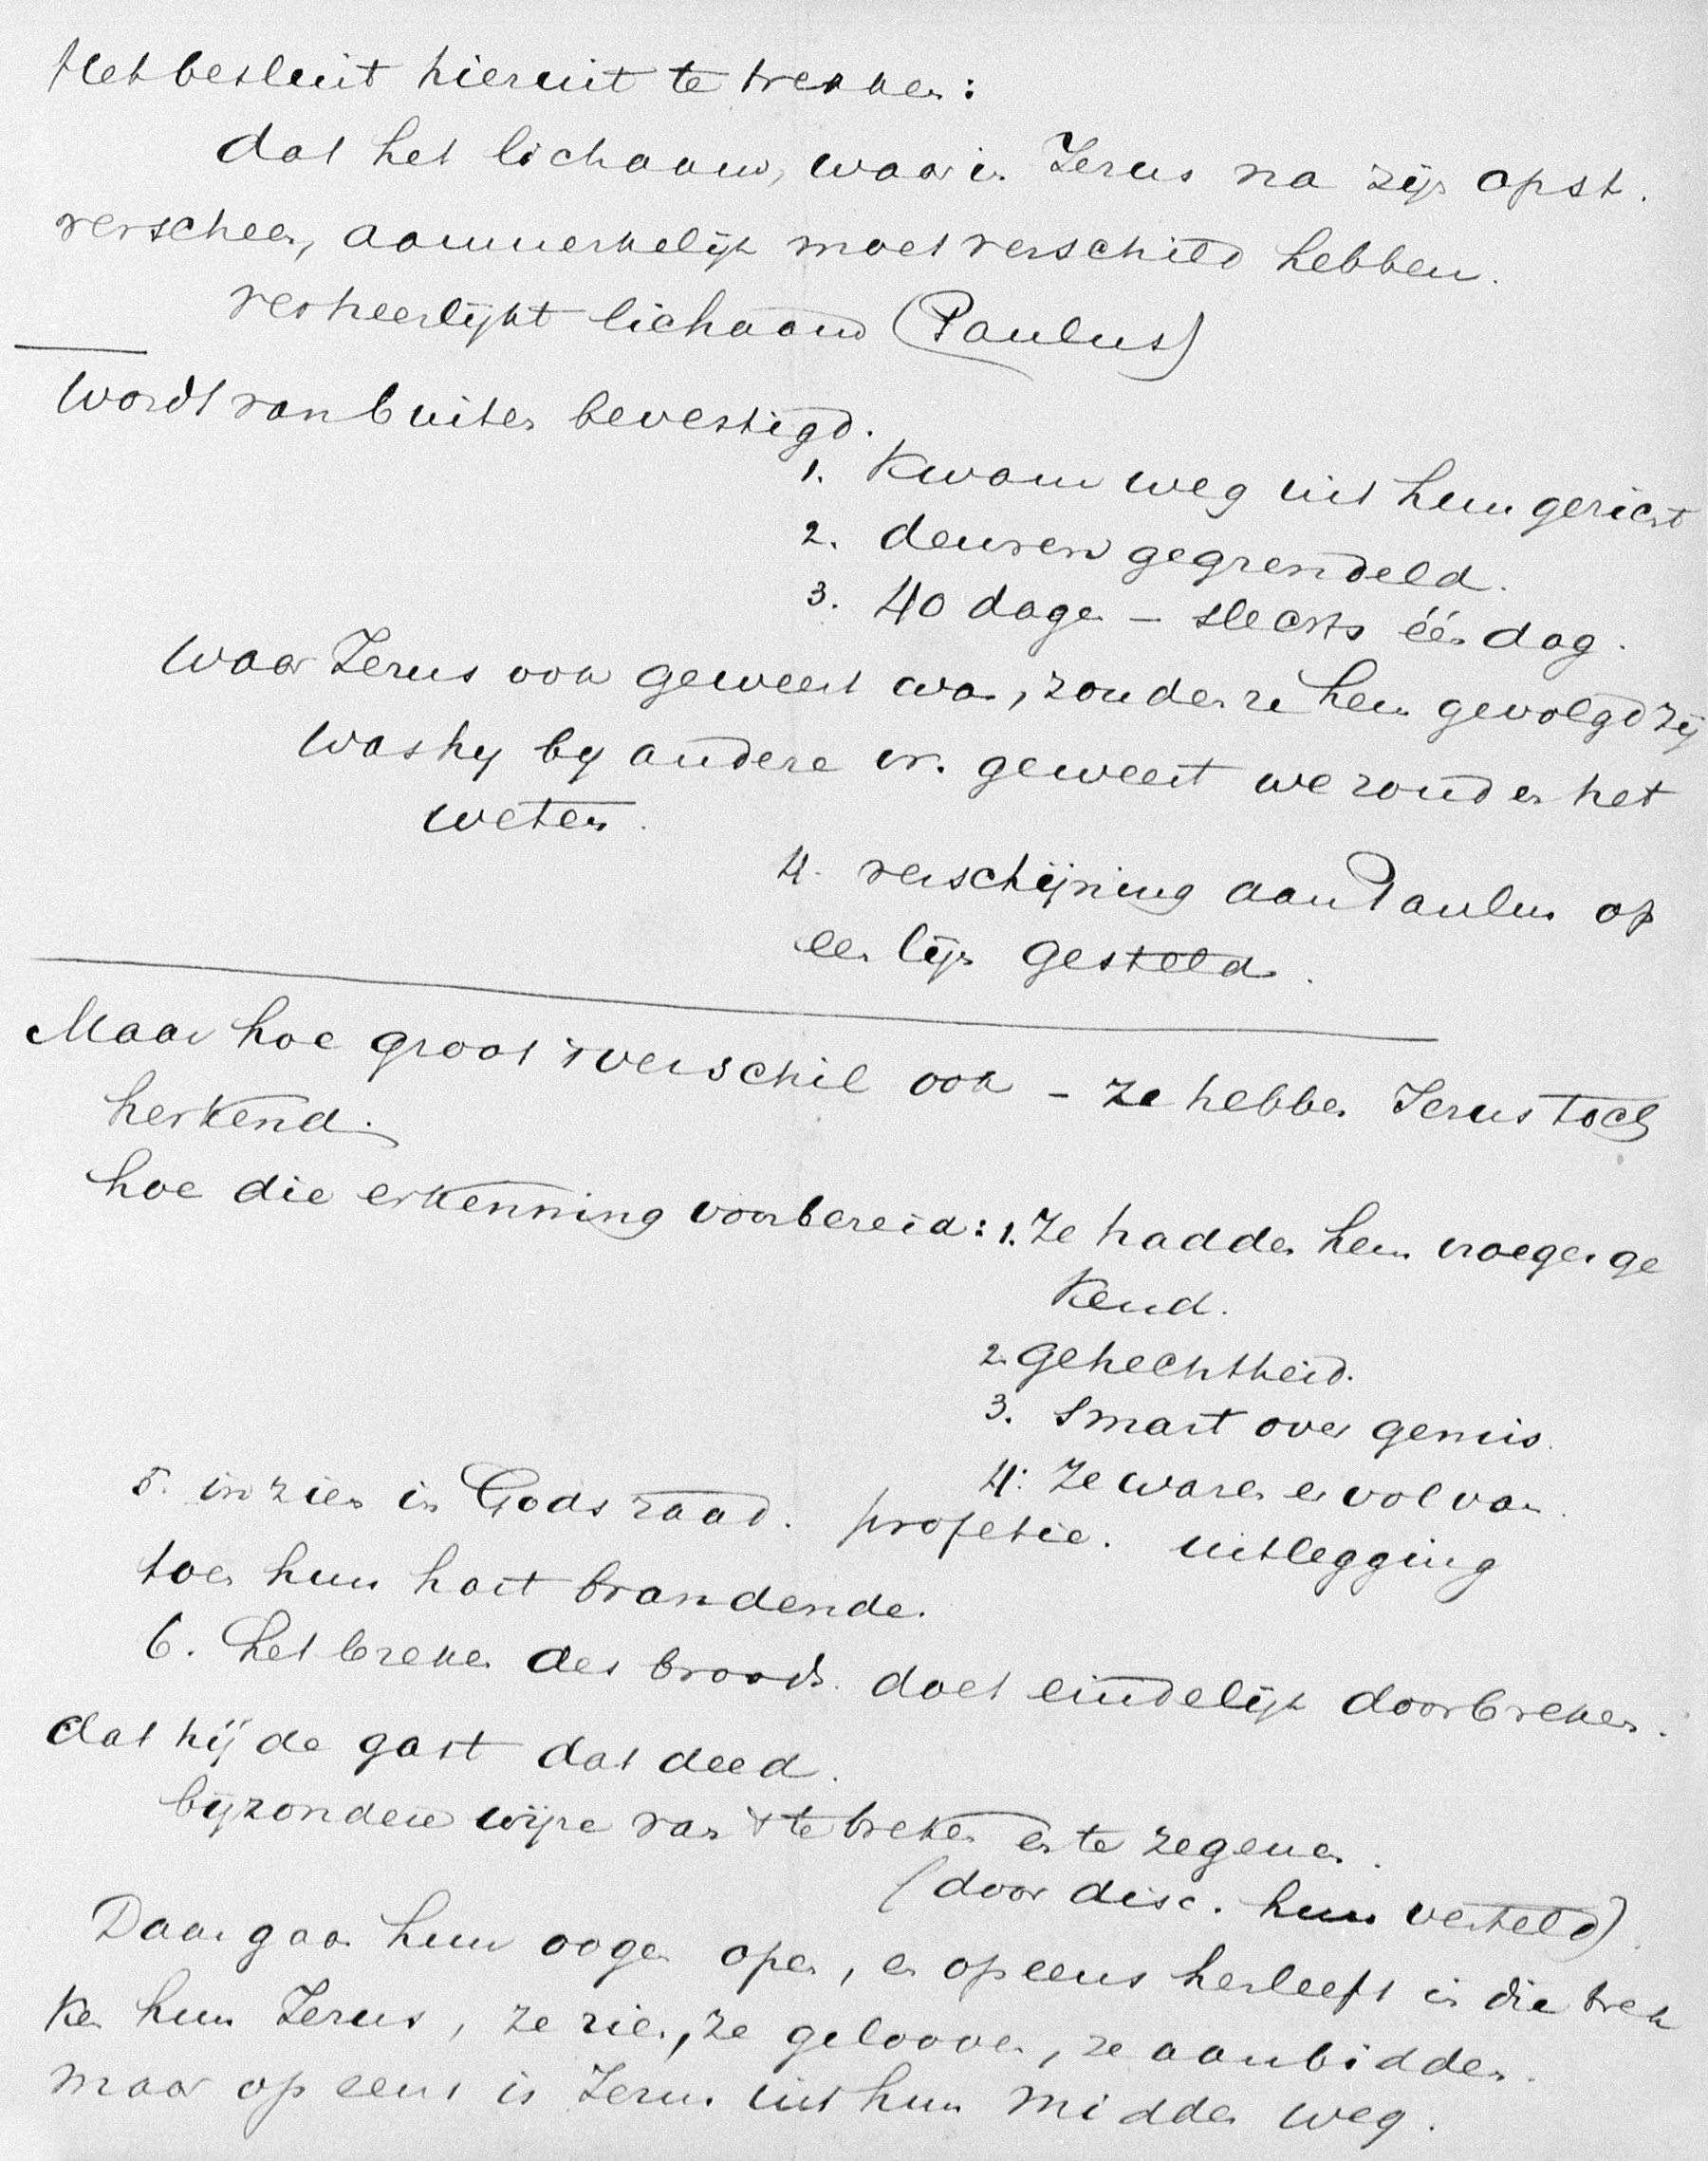 Het besluit hieruit te trekken:
dat het lichaam, waarin Jezus na zijn opst.
verscheen, aanmerkelijk moet verschild hebben.
verheerlijkt lichaam (Paulus)
Wordt van buiten bevestigd.
1. Kwam weg uit hun gezicht
2. deuren gegrendeld.
3. 40 dagen - slechts één dag.
Waar Jezus ook geweest was, zouden ze hem gevolgd zijn
Was hy by andere vr. geweest we zouden het
weten.
4. verschijning aan Paulus op
een lijn gesteld.
Maar hoe groot 't verschil ook - ze hebben Jezus toch
herkend.
hoe die erkenning voorbereid: 1. Ze hadden hem vroeger ge
kend.
2. gehechtheid.
3. smart over gemis.
4. Ze waren er vol van.
5. inzien in Gods raad. profetie. uitlegging
toen hun hart brandende.
6. het breken des broods. doet eindelijk doorbreken.
dat hij de gast dat deed.
bijzondere wijze van 't te breken en te zegenen.
(door disc. hun verteld)
Daar gaan hun oogen open, en opeens herleeft in die trek
ken hun Jezus, ze zien, ze gelooven, ze aanbidden.
maar opeens is Jezus uit hun midden weg.